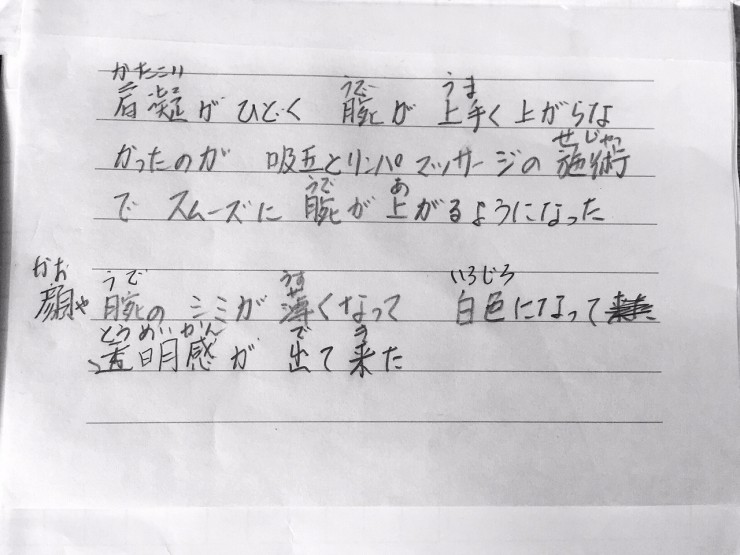 かたこり うで うま
肩凝がひどく 腕が 上手く上がらな
せじゅつ
かったのが 吸玉とリンパマッサージの施術
うで あ
で スムーズに 腕が上がるようになった
かお うで うす いろじろ
顔や腕のシミが薄くなって 白色になって
とうめいかん で き
透明感が出て来た